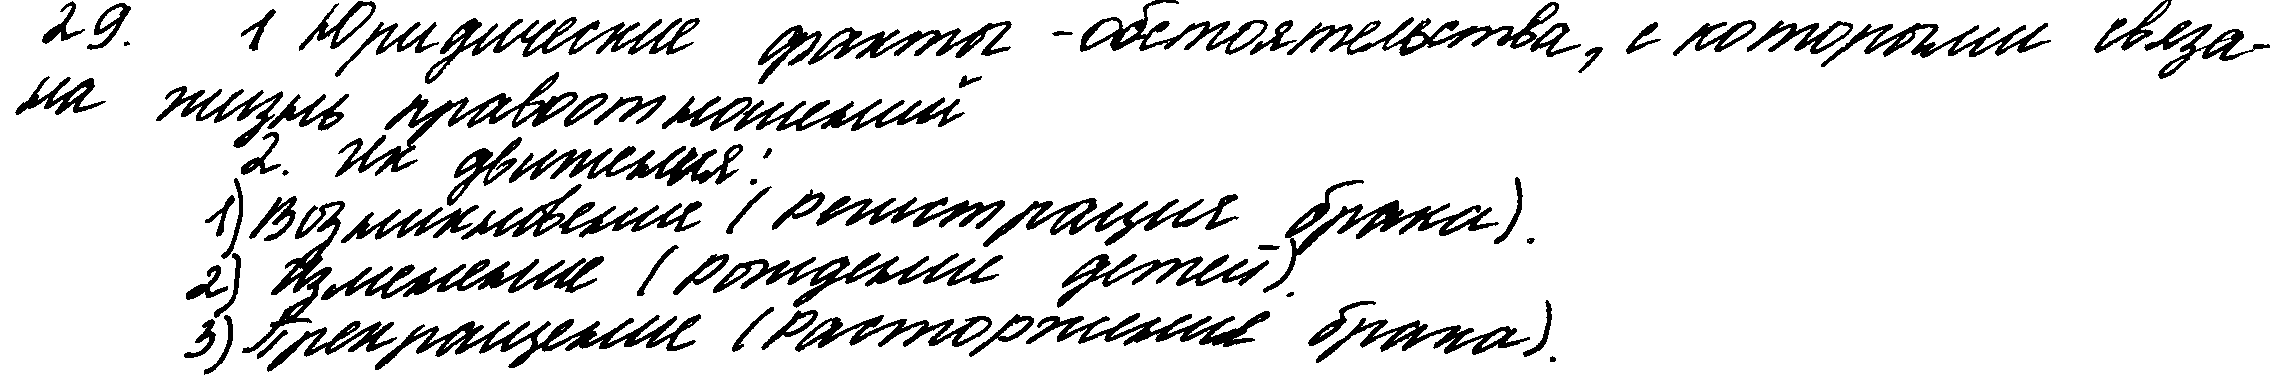 29. 1 Юридические факты - обстоятельства, с которыми связа-
на жизнь правоотношений
2. Их движения:
1) Возникновение (регистрация брака).
2) Изменение (рождение детей).
3) Прекращение (расторжение брака).